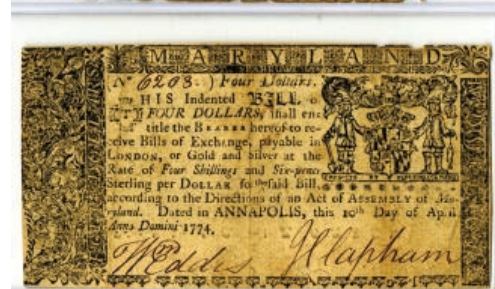 MARYLAND
No 6203.) Four Dollars.
THIS Indented BILL of
FOUR DOLLARS, shall en-
title the BEARER hereof to re-
ceive Bills of Exchange, payable in
LONDON, or Gold and Silver at the
Rate of Four Shillings and Six-pence
Sterling per DOLLAR for the said Bill,
according to the Directions of an Act of ASSEMBLY of Ma-
ryland. Dated in ANNAPOLIS, this 10th Day of April
Anno Domini 1774.
W Eddis JClapham